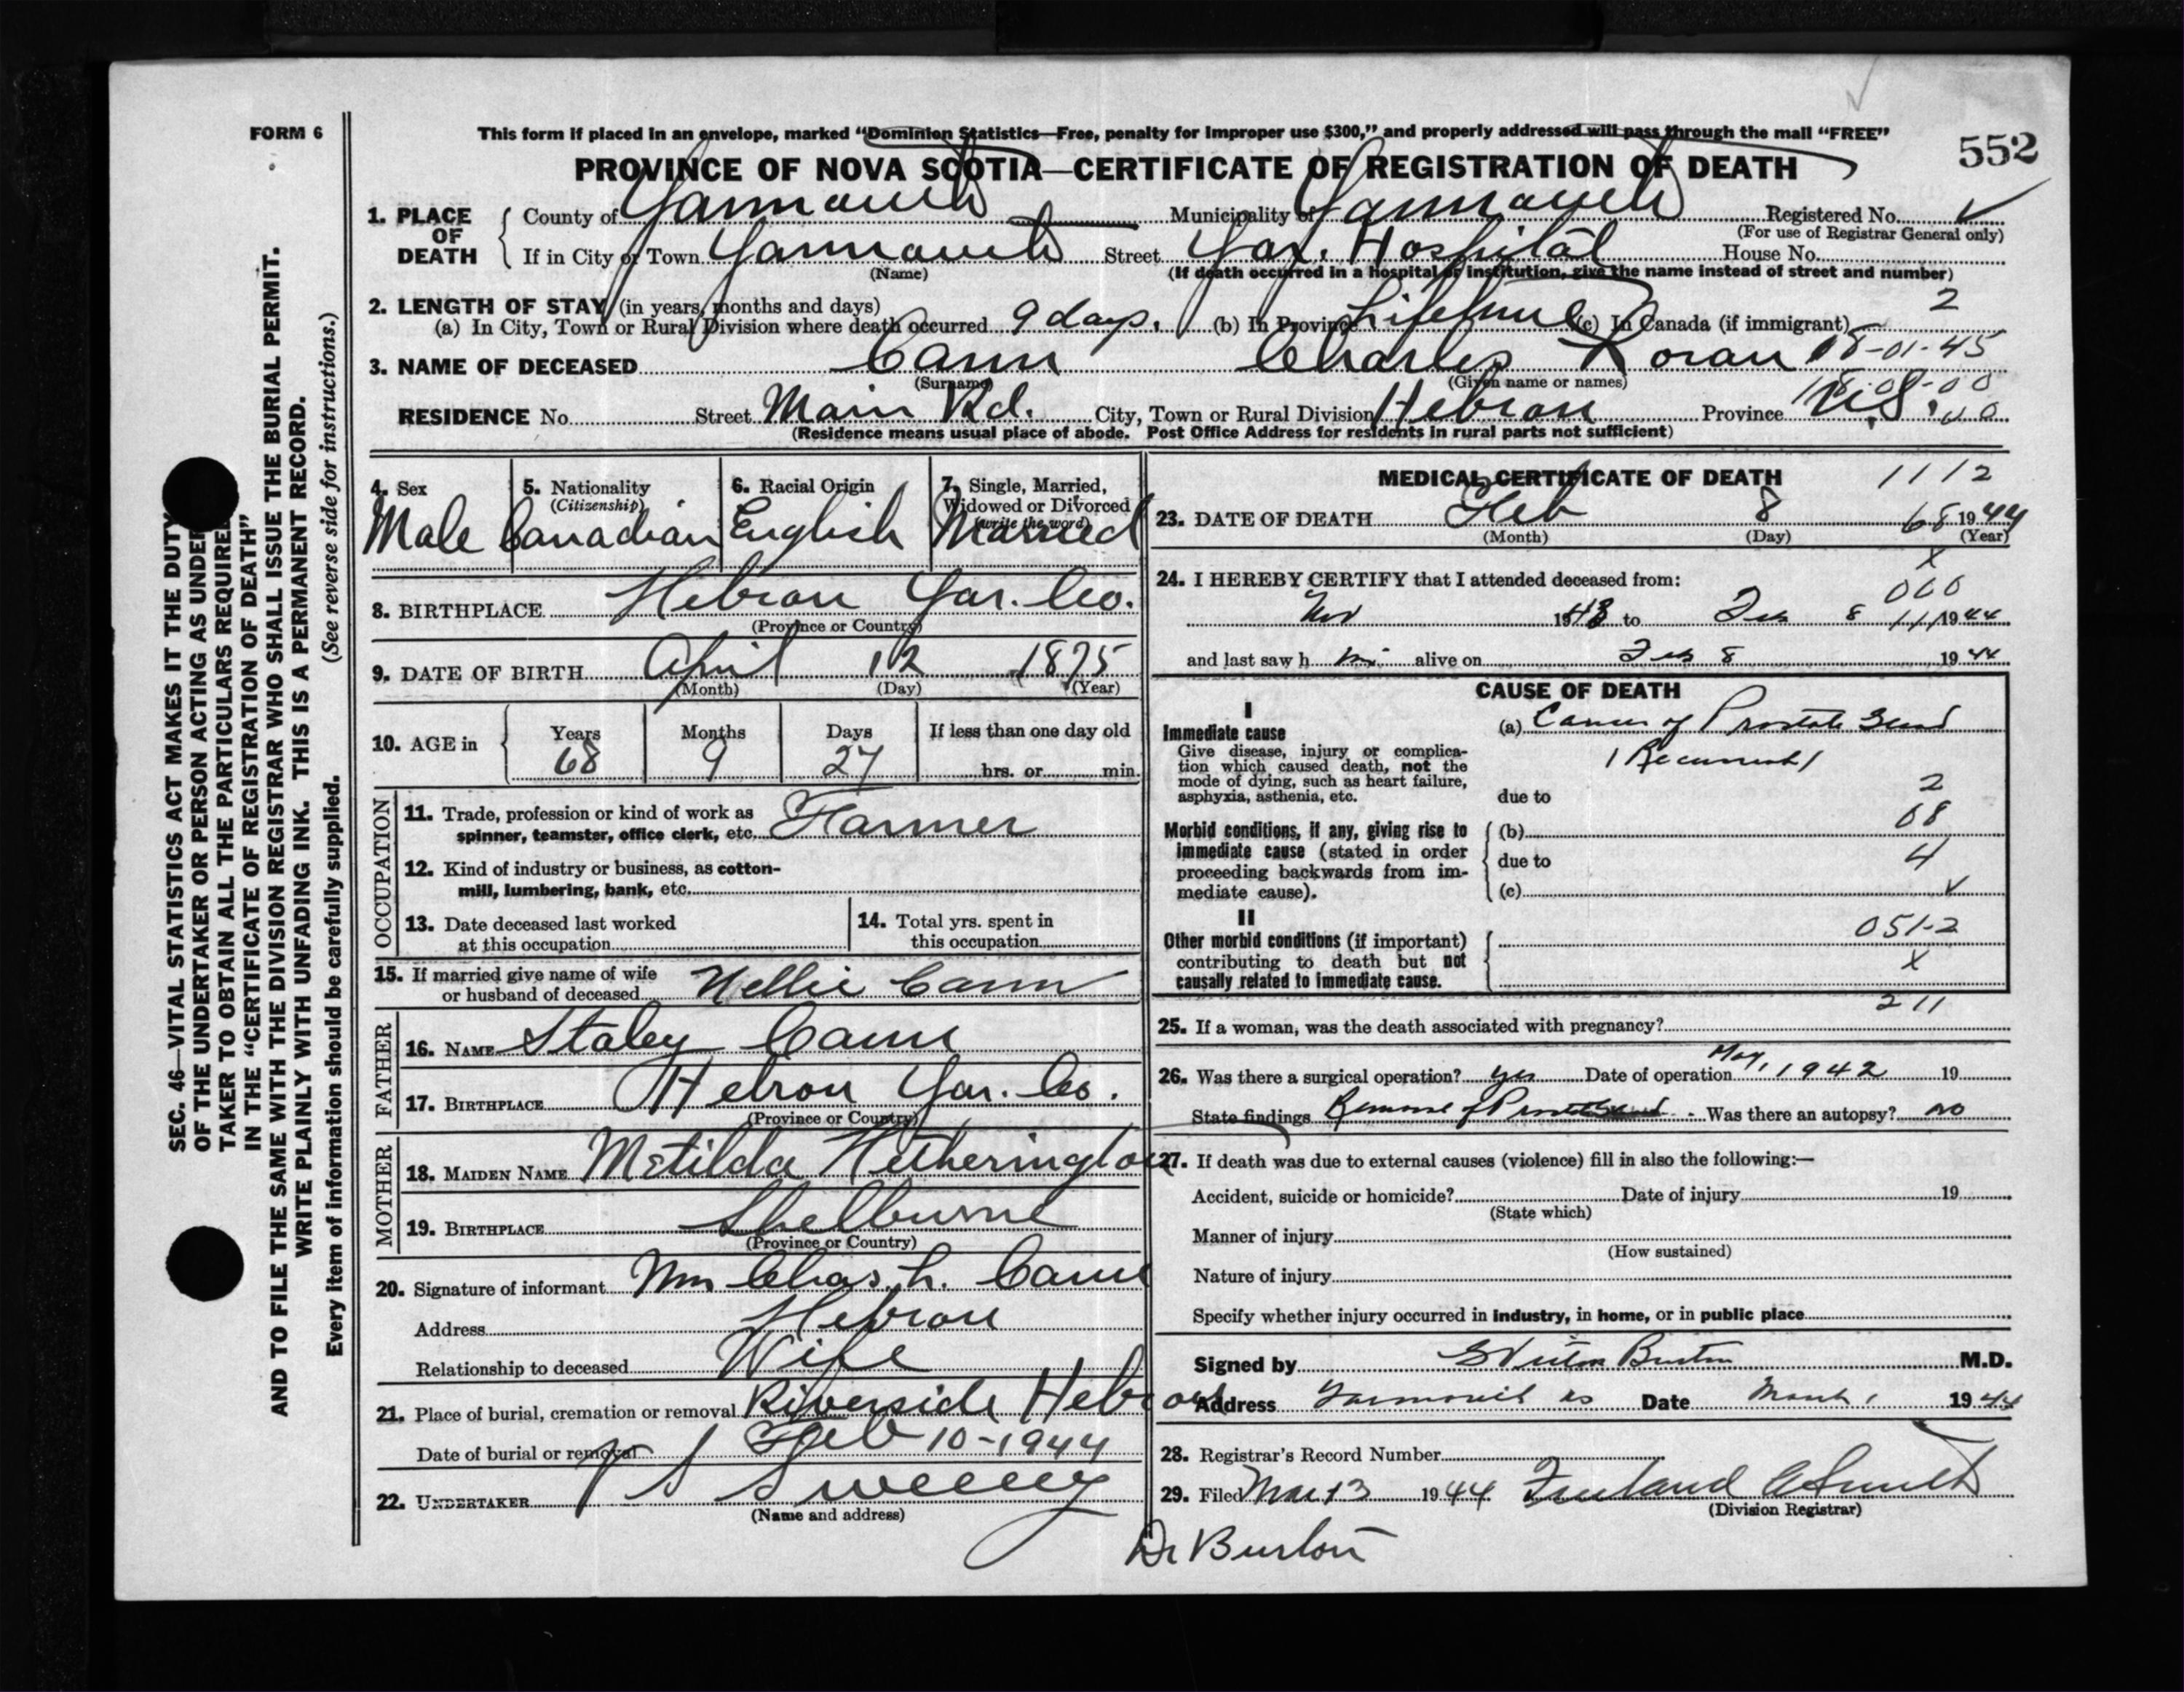 FORM 6
This form if placed in an envelope, marked "Dominion Statistics—Free, penalty for improper use $300," and properly addressed will pass through the mail "FREE"
552
PROVINCE OF NOVA SCOTIA—CERTIFICATE OF REGISTRATION OF DEATH
1. PLACE OF DEATH
County of Yarmouth Municipality of Yarmouth Registered No.
(For use of Registrar General only)
If in City or Town Yarmouth Street Yar. Hospital House No.
(Name) (If death occurred in a hospital or institution, give the name instead of street and number)
2. LENGTH OF STAY (in years, months and days) 2
(a) In City, Town or Rural Division where death occurred 9 days. (b) In Province Lifetime (c) In Canada (if immigrant)
3. NAME OF DECEASED Cann Charles Loran 18-01-45
(Surname) (Given name or names)
RESIDENCE No. Street Main Rd. City, Town or Rural Division Hebron Province N.S.
(Residence means usual place of abode. Post Office Address for residents in rural parts not sufficient)
4. Sex
Male
5. Nationality
(Citizenship)
Canadian
6. Racial Origin
English
7. Single, Married,
Widowed or Divorced
(write the word)
Married
8. BIRTHPLACE Hebron Yar. Co.
(Province or Country)
9. DATE OF BIRTH April 12 1875
(Month) (Day) (Year)
10. AGE in
Years Months Days If less than one day old
68 9 27 hrs. or min.
OCCUPATION
11. Trade, profession or kind of work as
spinner, teamster, office clerk, etc. Farmer
12. Kind of industry or business, as cotton-
mill, lumbering, bank, etc.
13. Date deceased last worked
at this occupation
14. Total yrs. spent in
this occupation
15. If married give name of wife
or husband of deceased Nellie Cann
FATHER
16. NAME Staley Cann
17. BIRTHPLACE Hebron Yar. Co.
(Province or Country)
MOTHER
18. MAIDEN NAME Metilda Hetherington
19. BIRTHPLACE Shelburne
(Province or Country)
20. Signature of informant Mrs Chas. L. Cann
Address Hebron
Relationship to deceased Wife
21. Place of burial, cremation or removal Riverside Hebron
Date of burial or removal Feb 10-1944
22. UNDERTAKER V S Sweeny
(Name and address)
MEDICAL CERTIFICATE OF DEATH 1112
23. DATE OF DEATH Feb 8 68 1944
(Month) (Day) (Year)
x
24. I HEREBY CERTIFY that I attended deceased from:
000
Nov 1943 to Feb 8 111 1944
and last saw him alive on Feb 8 1944
CAUSE OF DEATH
I
Immediate cause
Give disease, injury or complica-
tion which caused death, not the
mode of dying, such as heart failure,
asphyxia, asthenia, etc.
(a) Cancer of Prostate Gland
(Recurrent)
2
due to
08
Morbid conditions, if any, giving rise to
immediate cause (stated in order
proceeding backwards from im-
mediate cause).
(b)
due to 4
(c)
II
Other morbid conditions (if important)
contributing to death but not
causally related to immediate cause.
051-2
x
211
25. If a woman, was the death associated with pregnancy?
26. Was there a surgical operation? yes Date of operation May, 1942 19
State findings Removal of Prostate Gland Was there an autopsy? no
27. If death was due to external causes (violence) fill in also the following:—
Accident, suicide or homicide? Date of injury 19
(State which)
Manner of injury
(How sustained)
Nature of injury
Specify whether injury occurred in industry, in home, or in public place
Signed by Burton M.D.
Address Yarmouth NS Date March 1 1944
28. Registrar's Record Number
29. Filed Mar 13 1944 Smith
(Division Registrar)
Dr Burton
SEC. 46—VITAL STATISTICS ACT MAKES IT THE DUTY
OF THE UNDERTAKER OR PERSON ACTING AS UNDER
TAKER TO OBTAIN ALL THE PARTICULARS REQUIRE
IN THE "CERTIFICATE OF REGISTRATION OF DEATH"
AND TO FILE THE SAME WITH THE DIVISION REGISTRAR WHO SHALL ISSUE THE BURIAL PERMIT.
WRITE PLAINLY WITH UNFADING INK. THIS IS A PERMANENT RECORD.
Every item of information should be carefully supplied. (See reverse side for instructions.)